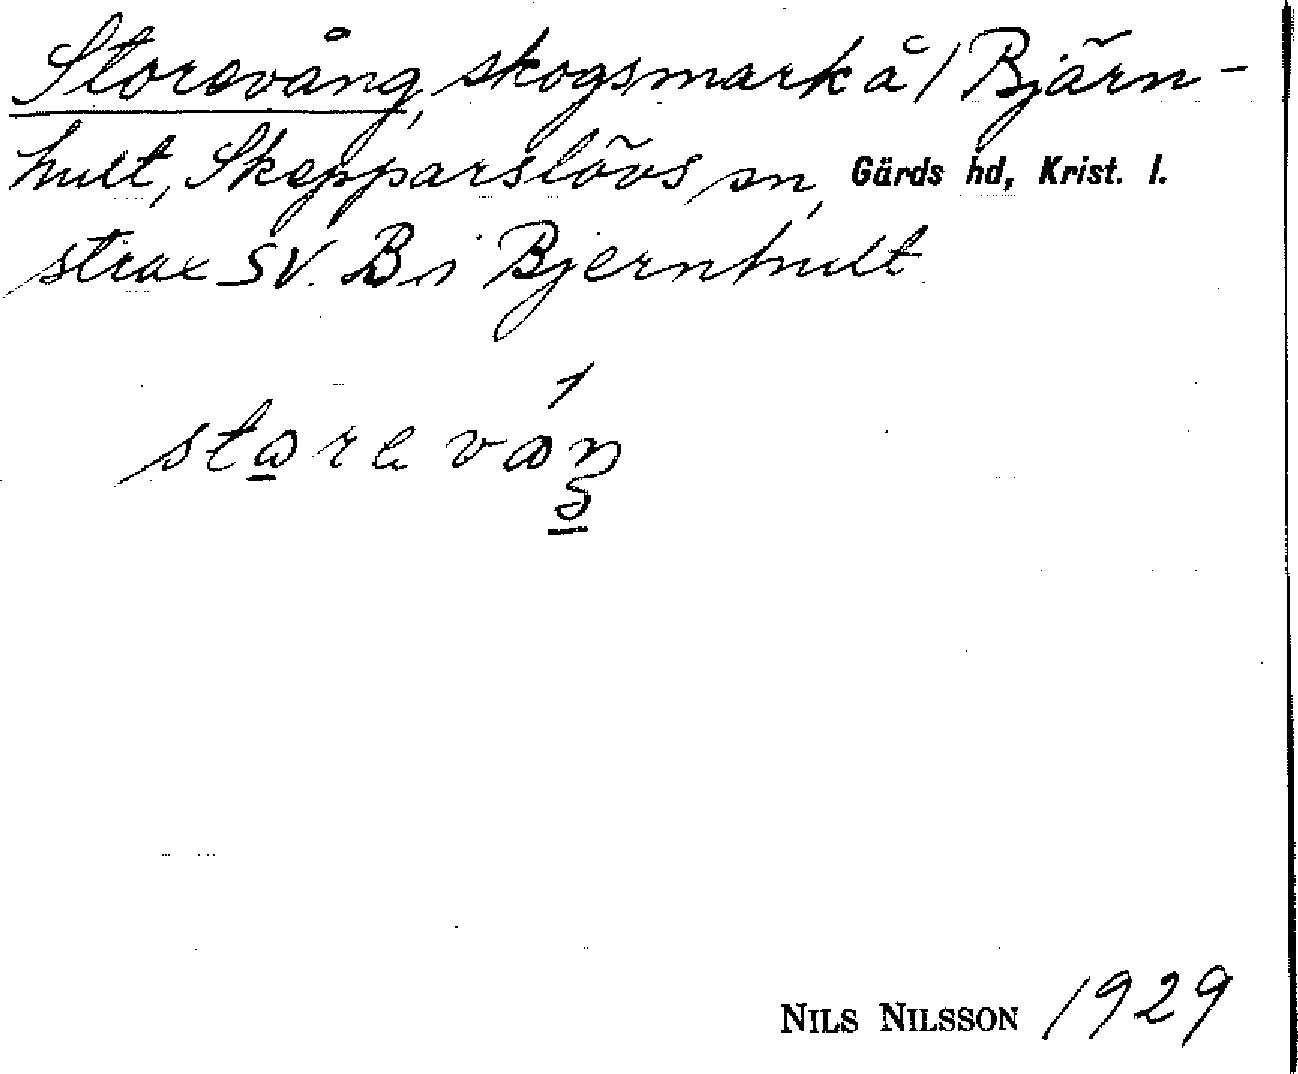 Storevång, skogsmark å / Bjärn-
hult, Skepparslövs sn, Gärds hd, Krist. l.
strax SV. B i Bjernhult
storeváŋ
NILS NILSSON 1929